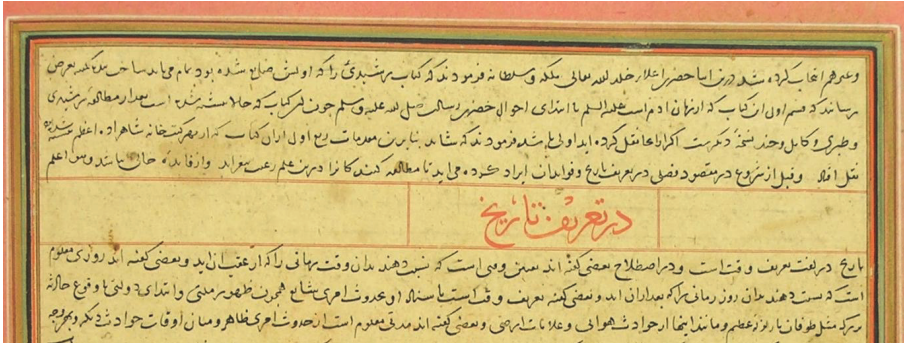 وغیرهم انتخاب کرده شد درین اثنا حضرت اعلا خلد الله تعالی ملکه وسلطانه فرمودند که کتاب رشیدی را که اولش ضایع شده بود تمام می باید ساخت بعرض
رسانند که قسم اول آن کتاب که از زمان ادم است علیه السلم تا ابتدای احوال حضرت رسالت صلی الله علیه وسلم چون کتاب که حالا شده است بعد از مطالعه رشیدی
وطبری وکامل وچند نسخهٔ دیگرست اگر از انجا نقل کرده اید اولی باشد فرمودند که شاید بنابرین مقدمات ربع اول ازان کتاب که از بهر کتب خانه شاهزاده اعظم
نقل افتاد وقبل از شروع در مقصود فصلی در تعریف تاریخ وفواید ان ایراد کرده می اید تا مطالعه کنندگانرا درین علم رغبت بیفزاید واز فایده خالی نباشد ومن الله
در تعریف تاریخ
تاریخ در لغت تعریف وقت است ودر اصطلاح بعضی گفته اند تعیین وقتی است که نسبت دهند بدان وقت زمانی را که از عقب ان اید وبعضی گفته اند روزی معلوم
است که نسبت دهند بدان روز زمانی را که بعد از ان اید وبعضی گفته تعریف وقت است باسناد او بحدوث امری شایع همچون ظهور ملتی وابتدای دولتی یا وقوع حادثهٔ
بزرگ مثل طوفان یا زلزله عظیم ومانند اینها از حوادث هوائی وعلامات ارضی وبعضی گفته اند مدتی معلوم است از حدوث امری ظاهر ومیان اوقات حوادث دیگر